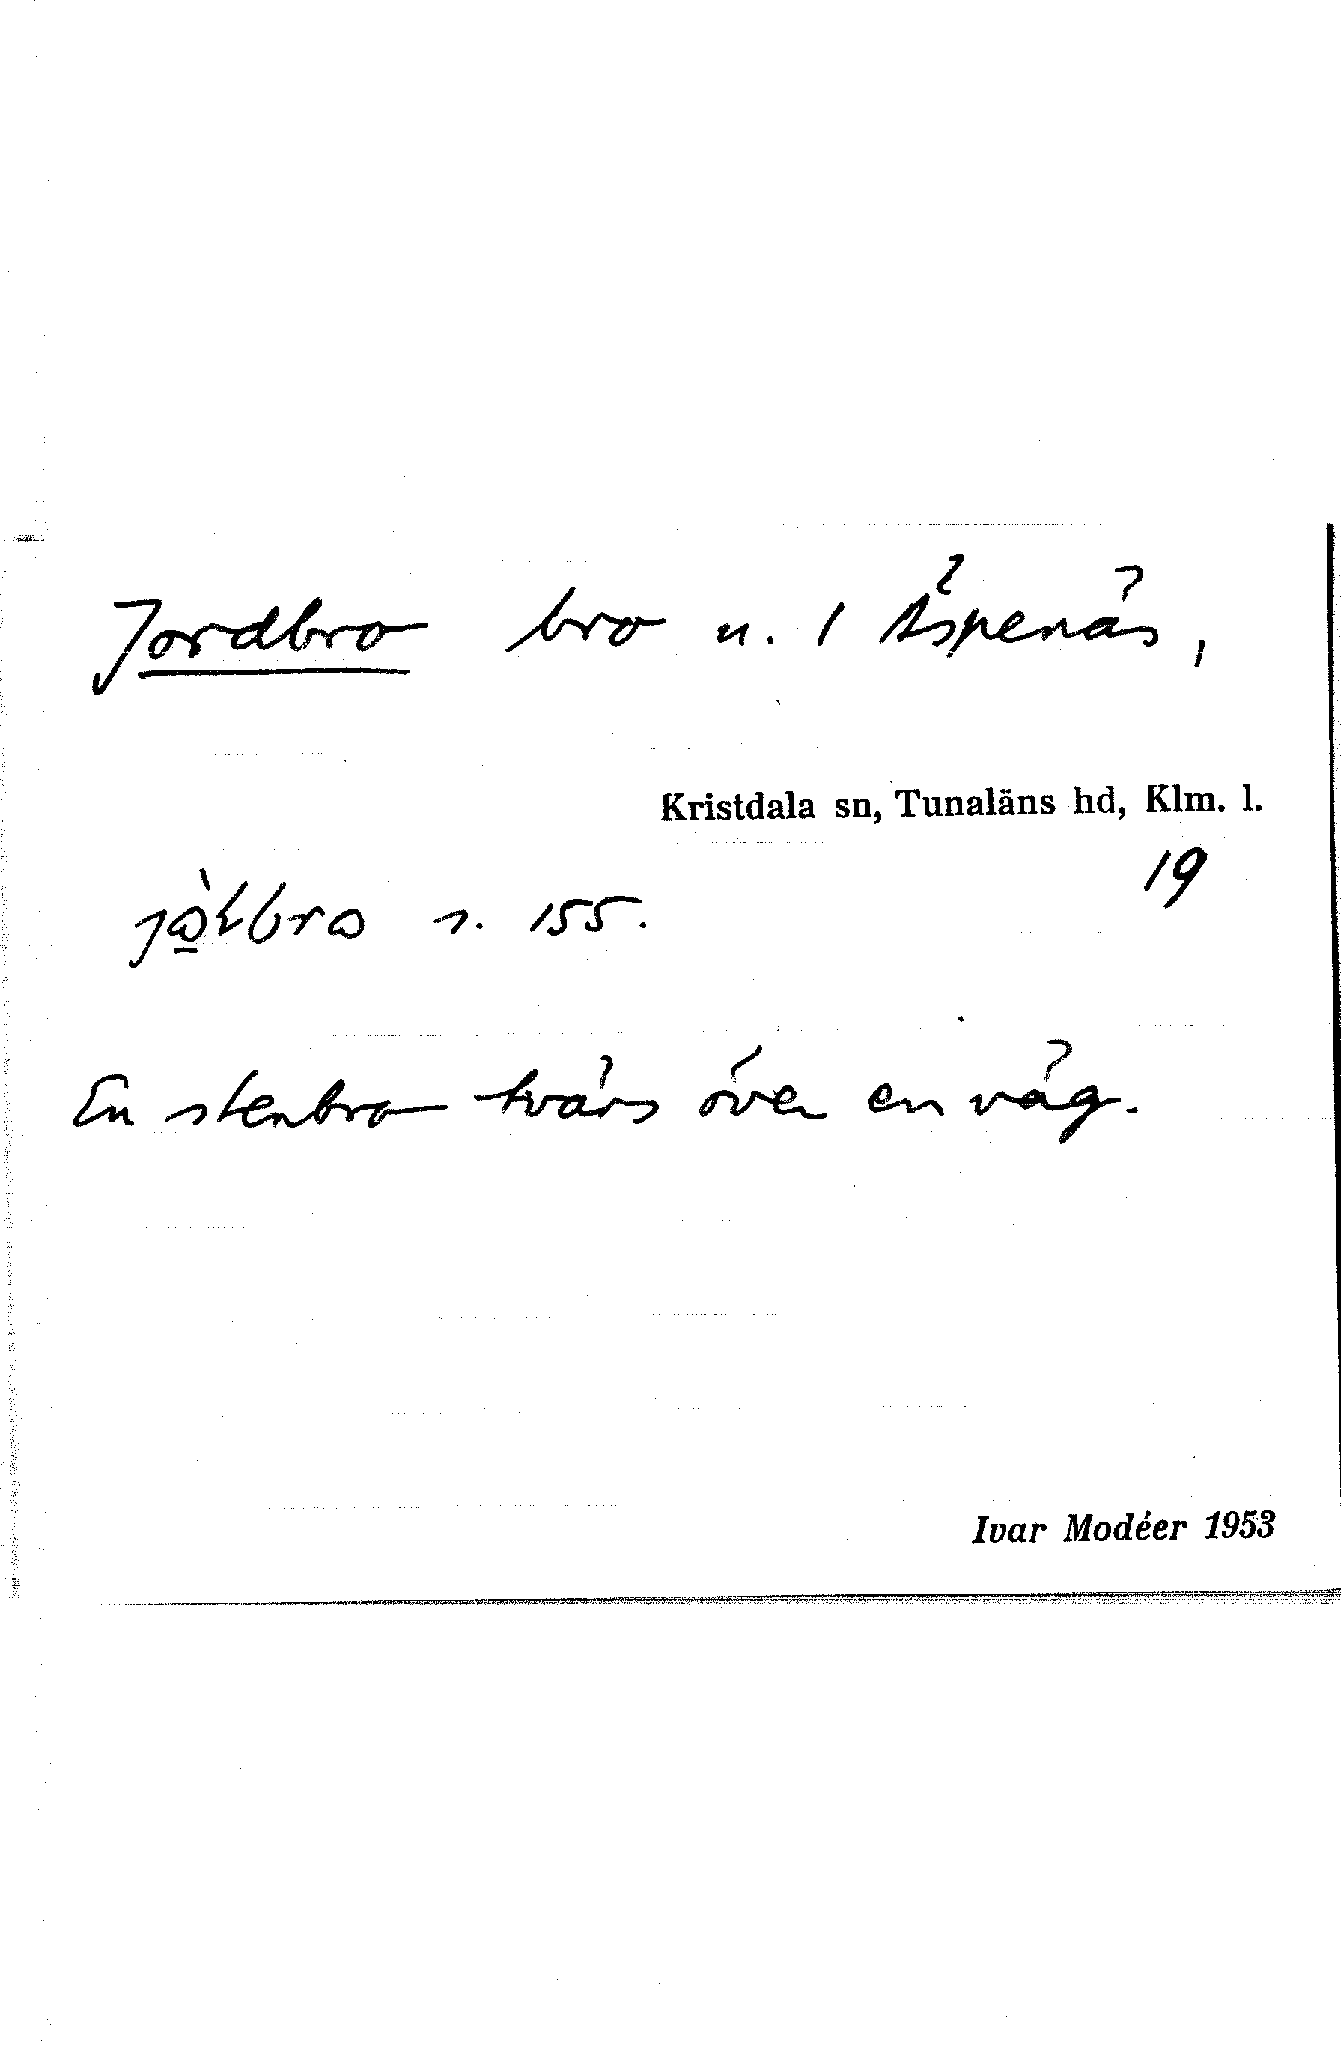 Jordbro bro u. 1 Äspenäs,
Kristdala sn, Tunaläns hd, Klm. l.
19
s. 155.
En stenbro tvärs över en väg.
Ivar Modéer 1953